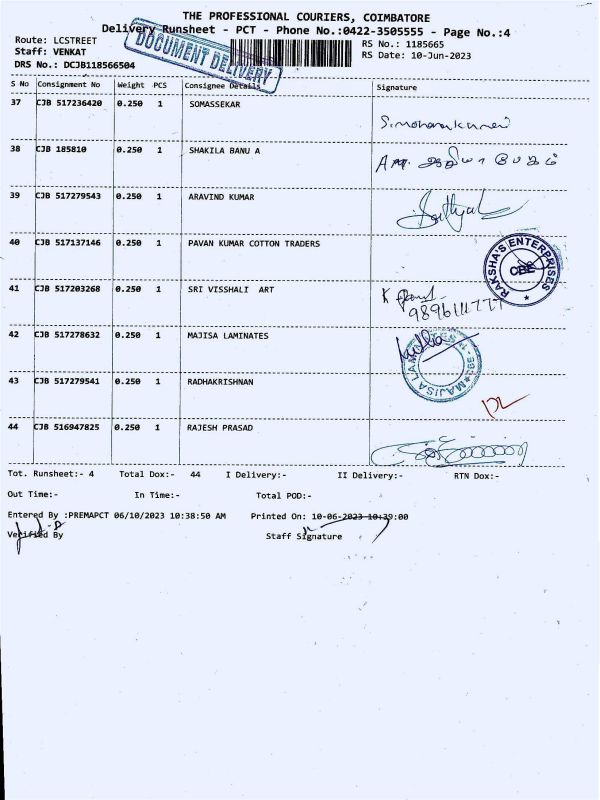 THE PROFESSIONAL COURIERS, COIMBATORE
Delivery Runsheet - PCT - Phone No.:0422-3505555 - Page No.:4
DOCUMENT DELIVERY
Route: LCSTREET
RS No.: 1185665
Staff: VENKAT
RS Date: 10-Jun-2023
DRS No.: DCJB118566504
S No Consignment No Weight PCS Consignee Details Signature
37 CJB 517236420 0.250 1 SOMASSEKAR
38 CJB 185810 0.250 1 SHAKILA BANU A
39 CJB 517279543 0.250 1 ARAVIND KUMAR
40 CJB 517137146 0.250 1 PAVAN KUMAR COTTON TRADERS
RAKSHA'S ENTERPRISES CBE
41 CJB 517203268 0.250 1 SRI VISSHALI ART
42 CJB 517278632 0.250 1 MAJISA LAMINATES
43 CJB 517279541 0.250 1 RADHAKRISHNAN
44 CJB 516947825 0.250 1 RAJESH PRASAD
Tot. Runsheet:- 4 Total Dox:- 44 I Delivery:- II Delivery:- RTN Dox:-
Out Time:- In Time:- Total POD:-
Entered By :PREMAPCT 06/10/2023 10:38:50 AM Printed On: 10-06-2023 10:39:00
Verified By Staff Signature